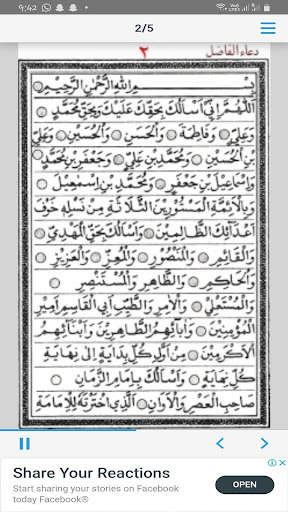 9:42
2/5
دعاء الفاضل
٢
بِسْمِ اللهِ الرَّحْمٰنِ الرَّحِيْمِ
اَللّٰهُمَّ اِنِّيْ اَسْأَلُكَ بِحَقِّكَ عَلَيْكَ وَبِحَقِّ مُحَمَّدٍ
وَعَلِيٍّ وَفَاطِمَةَ وَالْحَسَنِ وَالْحُسَيْنِ وَعَلِيِّ
بْنِ الْحُسَيْنِ وَمُحَمَّدِ بْنِ عَلِيٍّ وَجَعْفَرِ بْنِ مُحَمَّدٍ
وَاِسْمَاعِيْلَ بْنِ جَعْفَرٍ وَمُحَمَّدِ بْنِ اِسْمٰعِيْلَ
وَبِالْاَئِمَّةِ الْمَسْتُوْرِيْنَ الثَّلَاثَةِ مِنْ نَسْلِهِ خَوْفَ
اَعْدَائِكَ الظَّالِمِيْنَ وَاَسْأَلُكَ بِحَقِّ الْمَهْدِيِّ
وَالْقَائِمِ وَالْمَنْصُوْرِ وَالْمُعِزِّ وَالْعَزِيْزِ
وَالْحَاكِمِ وَالظَّاهِرِ وَالْمُسْتَنْصِرِ
وَالْمُسْتَعْلِيْ وَالْاٰمِرِ وَالطَّيِّبِ اَبِي الْقَاسِمِ اَمِيْرِ
الْمُؤْمِنِيْنَ وَاٰبَائِهِمُ الطَّاهِرِيْنَ وَاَبْنَائِهِمُ
الْاَكْرَمِيْنَ مِنْ اَوَّلِ كُلِّ بِدَايَةٍ اِلٰى نِهَايَةِ
كُلِّ نِهَايَةٍ وَاَسْأَلُكَ بِاِمَامِ الزَّمَانِ
صَاحِبِ الْعَصْرِ وَالْاَوَانِ الَّذِيْ اخْتَرْتَهُ لِلْاِمَامَةِ
Share Your Reactions
Start sharing your stories on Facebook
today Facebook®
OPEN